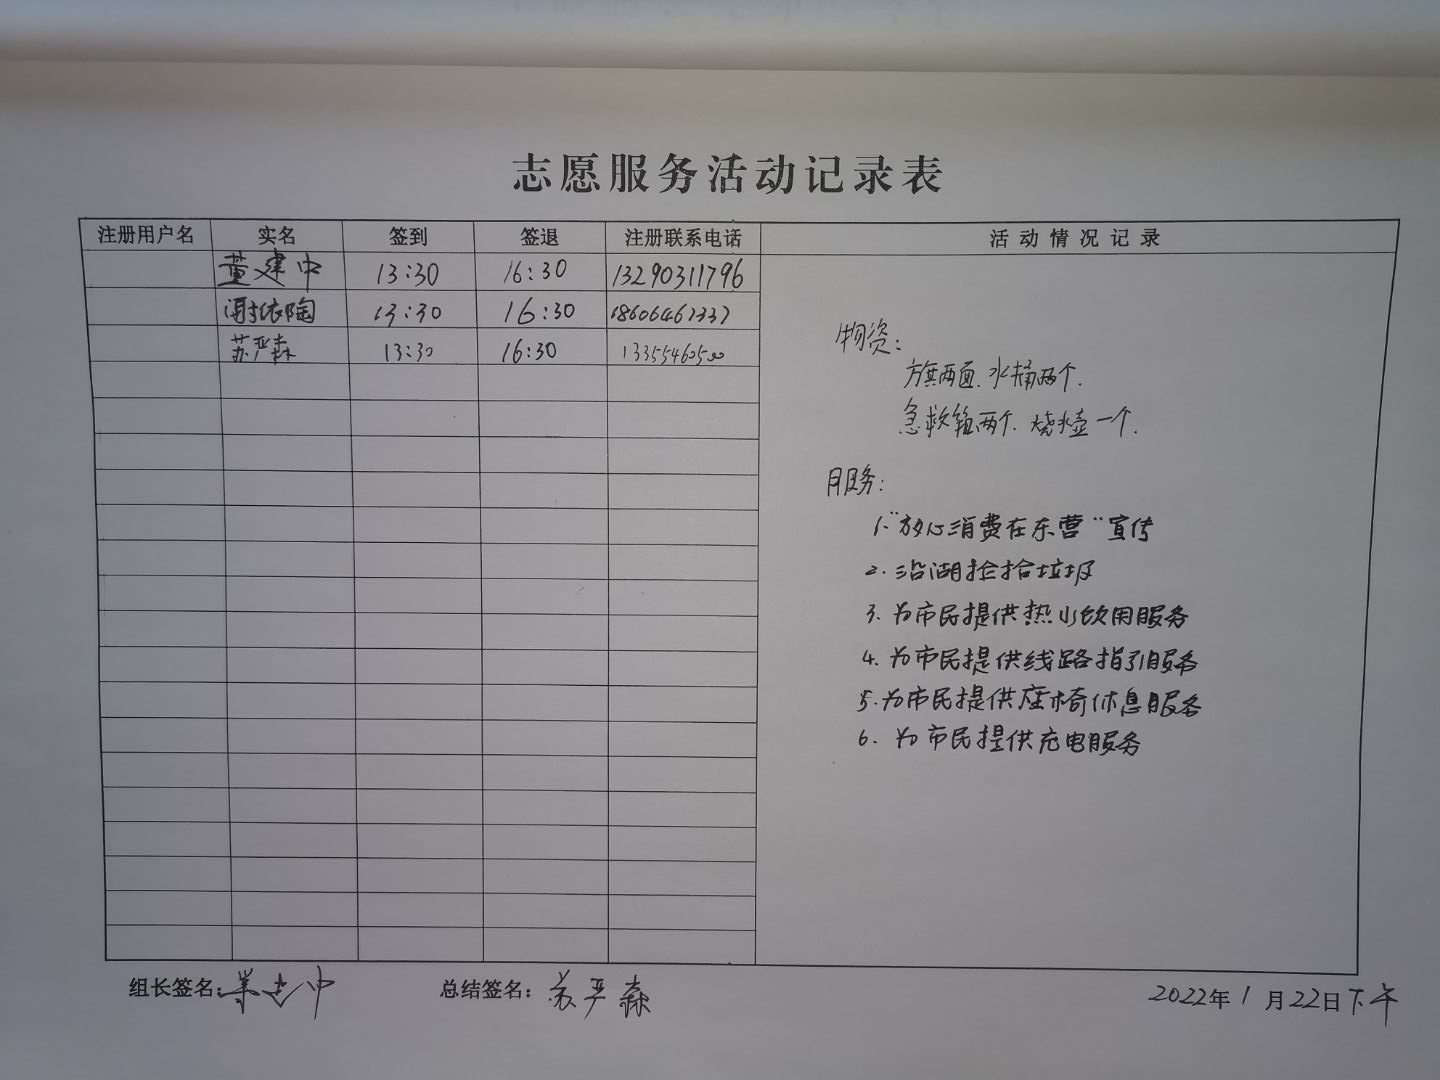 志愿服务活动记录表
注册用户名 实名 签到 签退 注册联系电话 活动情况记录
董建中 13:30 16:30 13290311796
谢依陶 13:30 16:30 18606461337
苏严森 13:30 16:30 13355460500
物资:
方旗两面、水桶两个.
急救箱两个、烧水壶一个.
服务:
1."放心消费在东营"宣传
2.沿湖捡拾垃圾
3.为市民提供热水饮用服务
4.为市民提供线路指引服务
5.为市民提供座椅休息服务
6.为市民提供充电服务
组长签名:董建中 总结签名:苏严森 2022年1月22日下午